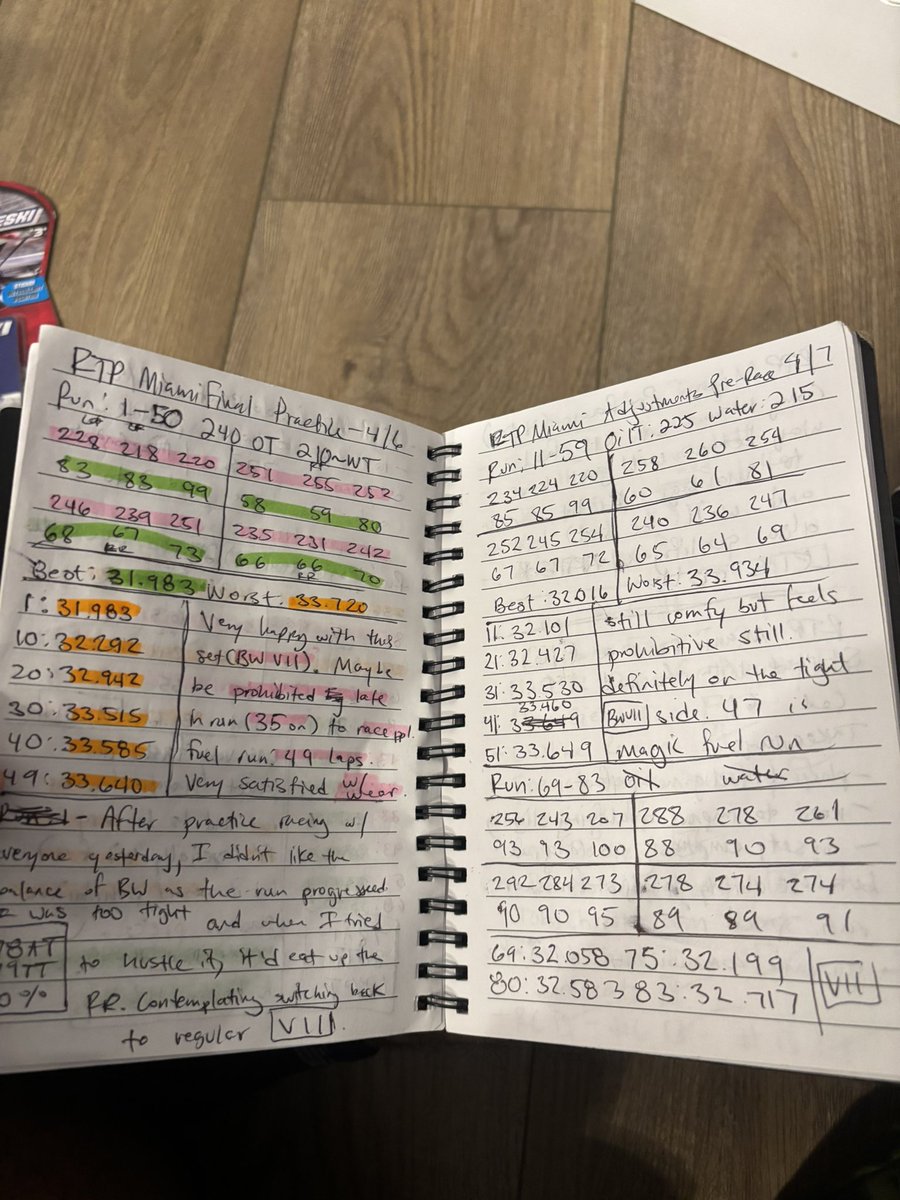 ESKI
RTP Miami Final Practice - 4/6
Run: 1-50 240 OT 210~WT
228 218 220 251 255 252
83 83 99 58 59 80
246 239 251 235 231 242
68 67 73 66 66 70
RR RR
Best: 31.983 Worst: 33.720
1: 31.983 Very happy with this
10: 32.292 set (BW VII). Maybe
20: 32.942 be prohibited late
30: 33.515 in run (35 on) to race ppl.
40: 33.585 fuel run: 49 laps.
49: 33.640 Very satisfied w/ wear.
- After practice racing w/
everyone yesterday, I didn't like the
balance of BW as the run progressed.
was too tight and when I tried
to hustle it, it'd eat up the
RR. Contemplating switching back
to regular VII.
78AT
9TT
0%
RTP Miami Adjustments Pre-Race 4/7
Run: 11-59 OilT: 225 Water: 215
234 224 220 258 260 254
85 85 99 60 61 81
252 245 254 240 236 247
67 67 72 65 64 69
Best: 32.016 Worst: 33.934
11: 32.101 still comfy but feels
21: 32.427 prohibitive still.
31: 33.530 definitely on the tight
41: 33.460 BWVII side. 47 is
51: 33.649 magic fuel run
Run: 69-83 oil water
256 243 207 288 278 261
93 93 100 88 90 93
292 284 273 278 274 274
90 90 95 89 89 91
69: 32.058 75: 32.199
80: 32.583 83: 32.717 VII